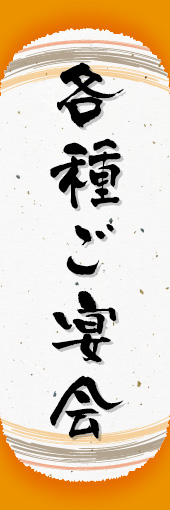 各種ご宴会